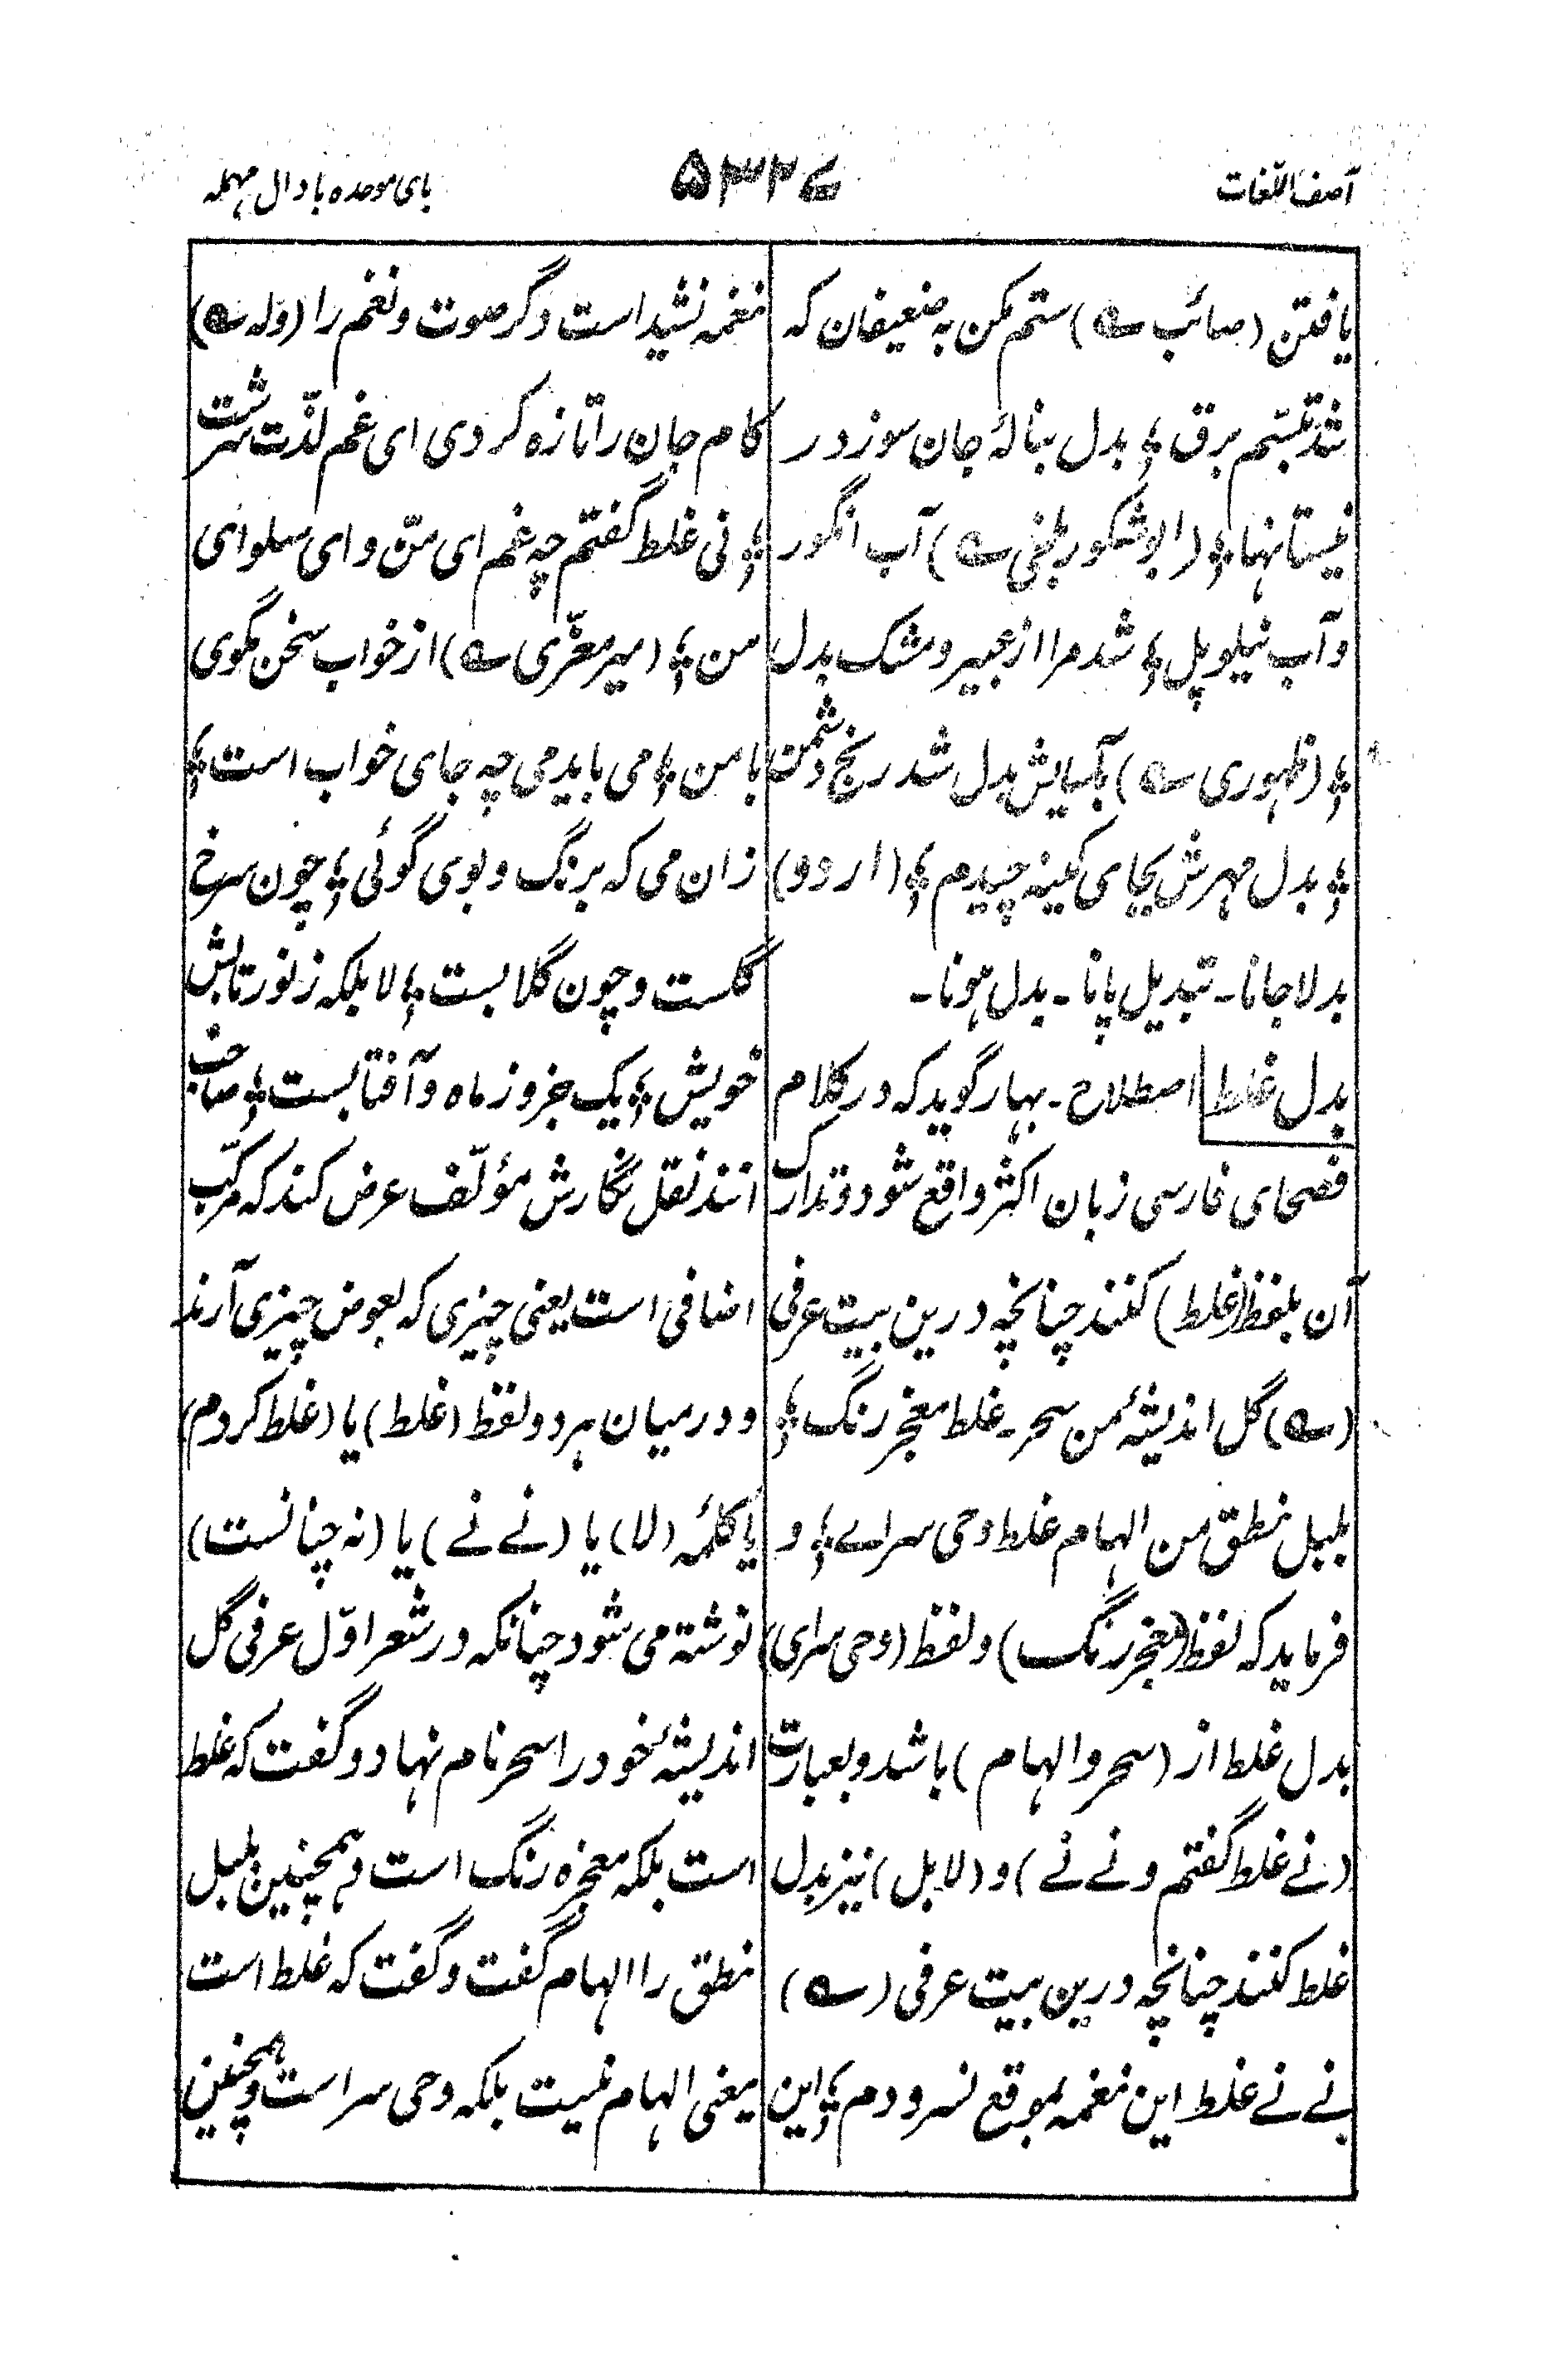 آصف اللّغات
۵۳۲۷
بای موحده با دال مهمله
یافتن (صائب ؎) ستم مکن به ضعیفان که
شد تبسّم برق ؛ بدل بنالۀ جان سوز در
نیستانها ؛ (ابو شکور بلخی ؎) آب انگور
و آب نیلوپل ؛ شد مرا از عبیر و مشک بدل
؛ (ظهوری ؎) بآسایش بدل شد رنج دشمن
؛ بدل مهرش بجای کینه چیدم ؛ (اردو)
بدلا جانا ۔ تبدیل پانا ۔ بدل ہونا ۔
بدل غلط اصطلاح ۔ بهار گوید که در کلام
فصحای فارسی زبان اکثر واقع شود و تدارک
آن بلفظ (غلط) کنند چنانچه درین بیت عرفی
(؎) گل اندیشۀ من سحر ۔ غلط معجز رنگ ؛
بلبل نطق من الهام غلط وحی سرای ؛ و
فرماید که لفظ (معجز رنگ) و لفظ (وحی سرای)
بدل غلط از (سحر و الهام) باشد و بعبارت
(نے غلط گفتم و نے نے) و (لا بل) نیز بدل
غلط کنند چنانچه درین بیت عرفی (؎)
نے نے غلط این نغمه بموقع نسرودم ؛ این
نغمه نشید است دگر صوت و نغم را (وله ؎)
کام جان را تازه کردی ای غم لذّت سرشت
؛ نی غلط گفتم چه غم ای منّ و ای سلوای
من ؛ (میر معزّی ؎) از خواب سخن مگوی
با من ؛ می باید می چه جای خواب است ؛
زان می که برنگ و بوی گوئی ؛ چون سرخ
گلست و چون گلابست ؛ لا بلکه ز نور تابش
خویش ؛ یک جزو ز ماه و آفتابست ؛ صاحب
انند نقل نگارش مؤلّف عرض کند که مرکّب
اضافی است یعنی چیزی که بعوض چیزی آرند
و درمیان هر دو لفظ (غلط) یا (غلط کردم)
یا کلمۀ (لا) یا (نے نے) یا (نه چنانست)
نوشته می شود چنانکه در شعر اوّل عرفی گل
اندیشۀ خود را سحر نام نهاد و گفت که غلط
است بلکه معجزه رنگ است و همچنین بلبل
نطق را الهام گفت و گفت که غلط است
یعنی الهام نیست بلکه وحی سراست و همچنین